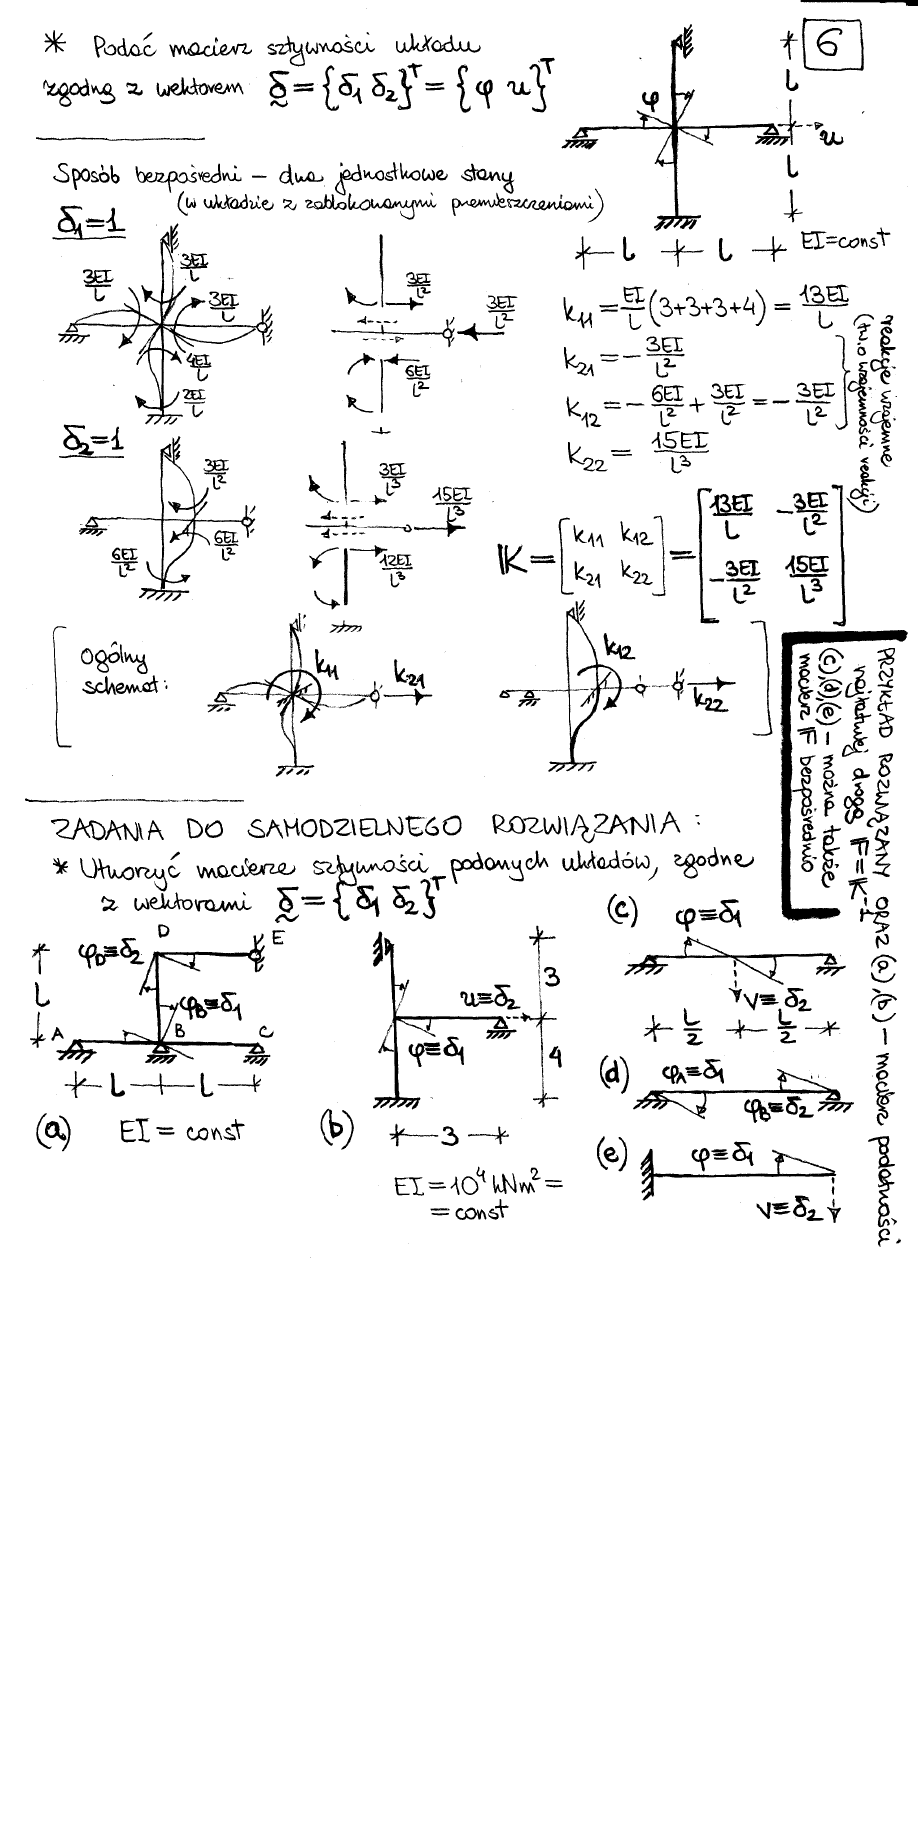 * Podać macierz sztywności układu
zgodną z wektorem δ = {δ₁ δ₂}ᵀ = {φ u}ᵀ
6
φ
u
l
l
l l
EI=const
Sposób bezpośredni – dwa jednostkowe stany
(w układzie z zablokowanymi przemieszczeniami)
δ₁=1
3EI/l
3EI/l
3EI/l
4EI/l
2EI/l
3EI/l²
3EI/l²
6EI/l²
k₁₁ = EI/l (3+3+3+4) = 13EI/l
k₂₁ = – 3EI/l²
k₁₂ = – 6EI/l² + 3EI/l² = – 3EI/l²
k₂₂ = 15EI/l³
reakcje wzajemne
(tw. o wzajemności reakcji)
δ₂=1
3EI/l²
6EI/l²
6EI/l²
3EI/l³
15EI/l³
12EI/l³
K = [k₁₁ k₁₂ k₂₁ k₂₂] = [13EI/l –3EI/l² –3EI/l² 15EI/l³]
Ogólny
schemat:
k₁₁
k₂₁
k₁₂
k₂₂
PRZYKŁAD ROZWIĄZANY ORAZ (a),(b) – macierz podatności
najłatwiej drogą F=K⁻¹
(c),(d),(e) – można także
macierz F bezpośrednio
ZADANIA DO SAMODZIELNEGO ROZWIĄZANIA :
* Utworzyć macierze sztywności podanych układów, zgodne
z wektorami δ = {δ₁ δ₂}ᵀ
D
φD≡δ₂
E
φB≡δ₁
l
A
B
C
l l
(a) EI = const
u≡δ₂
φ≡δ₁
3
4
(b)
3
EI=10⁴ kNm² =
= const
(c) φ≡δ₁
v≡δ₂
l/2 l/2
(d) φA≡δ₁
φB≡δ₂
(e) φ≡δ₁
v≡δ₂